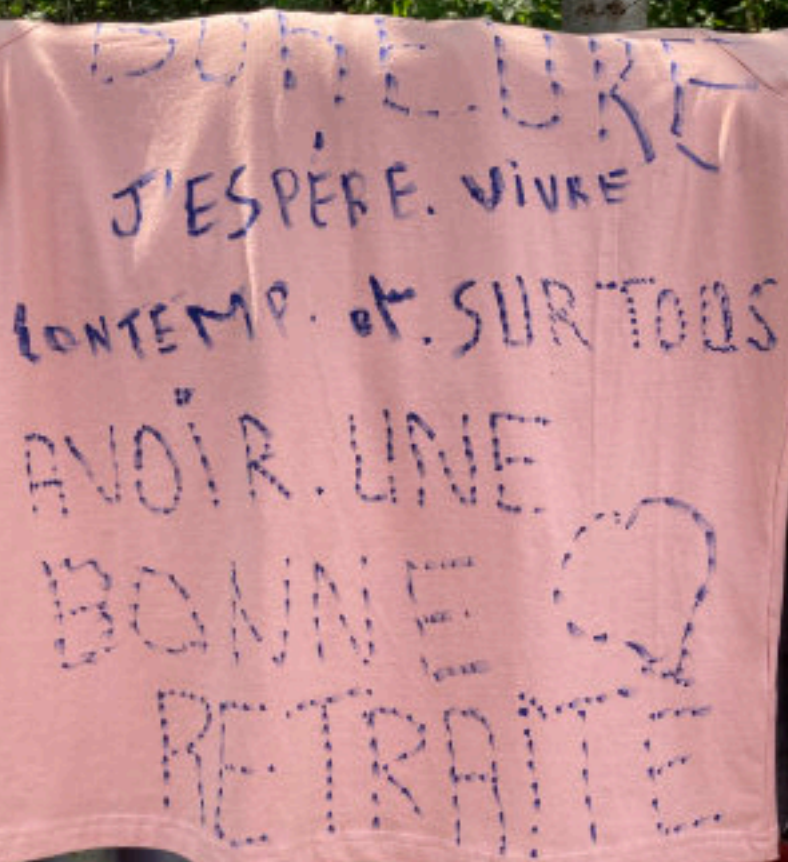 BONEURE
J'ESPÉRE. ViVRE
LONTEMP. et. SURTOUS
AVOiR. UNE
BONNE
RETRAiTE